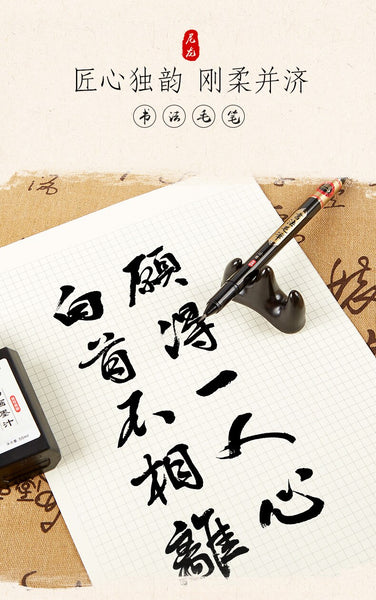 匠心独韵 刚柔并济
书法毛笔
願得一人心
白首不相離
墨汁